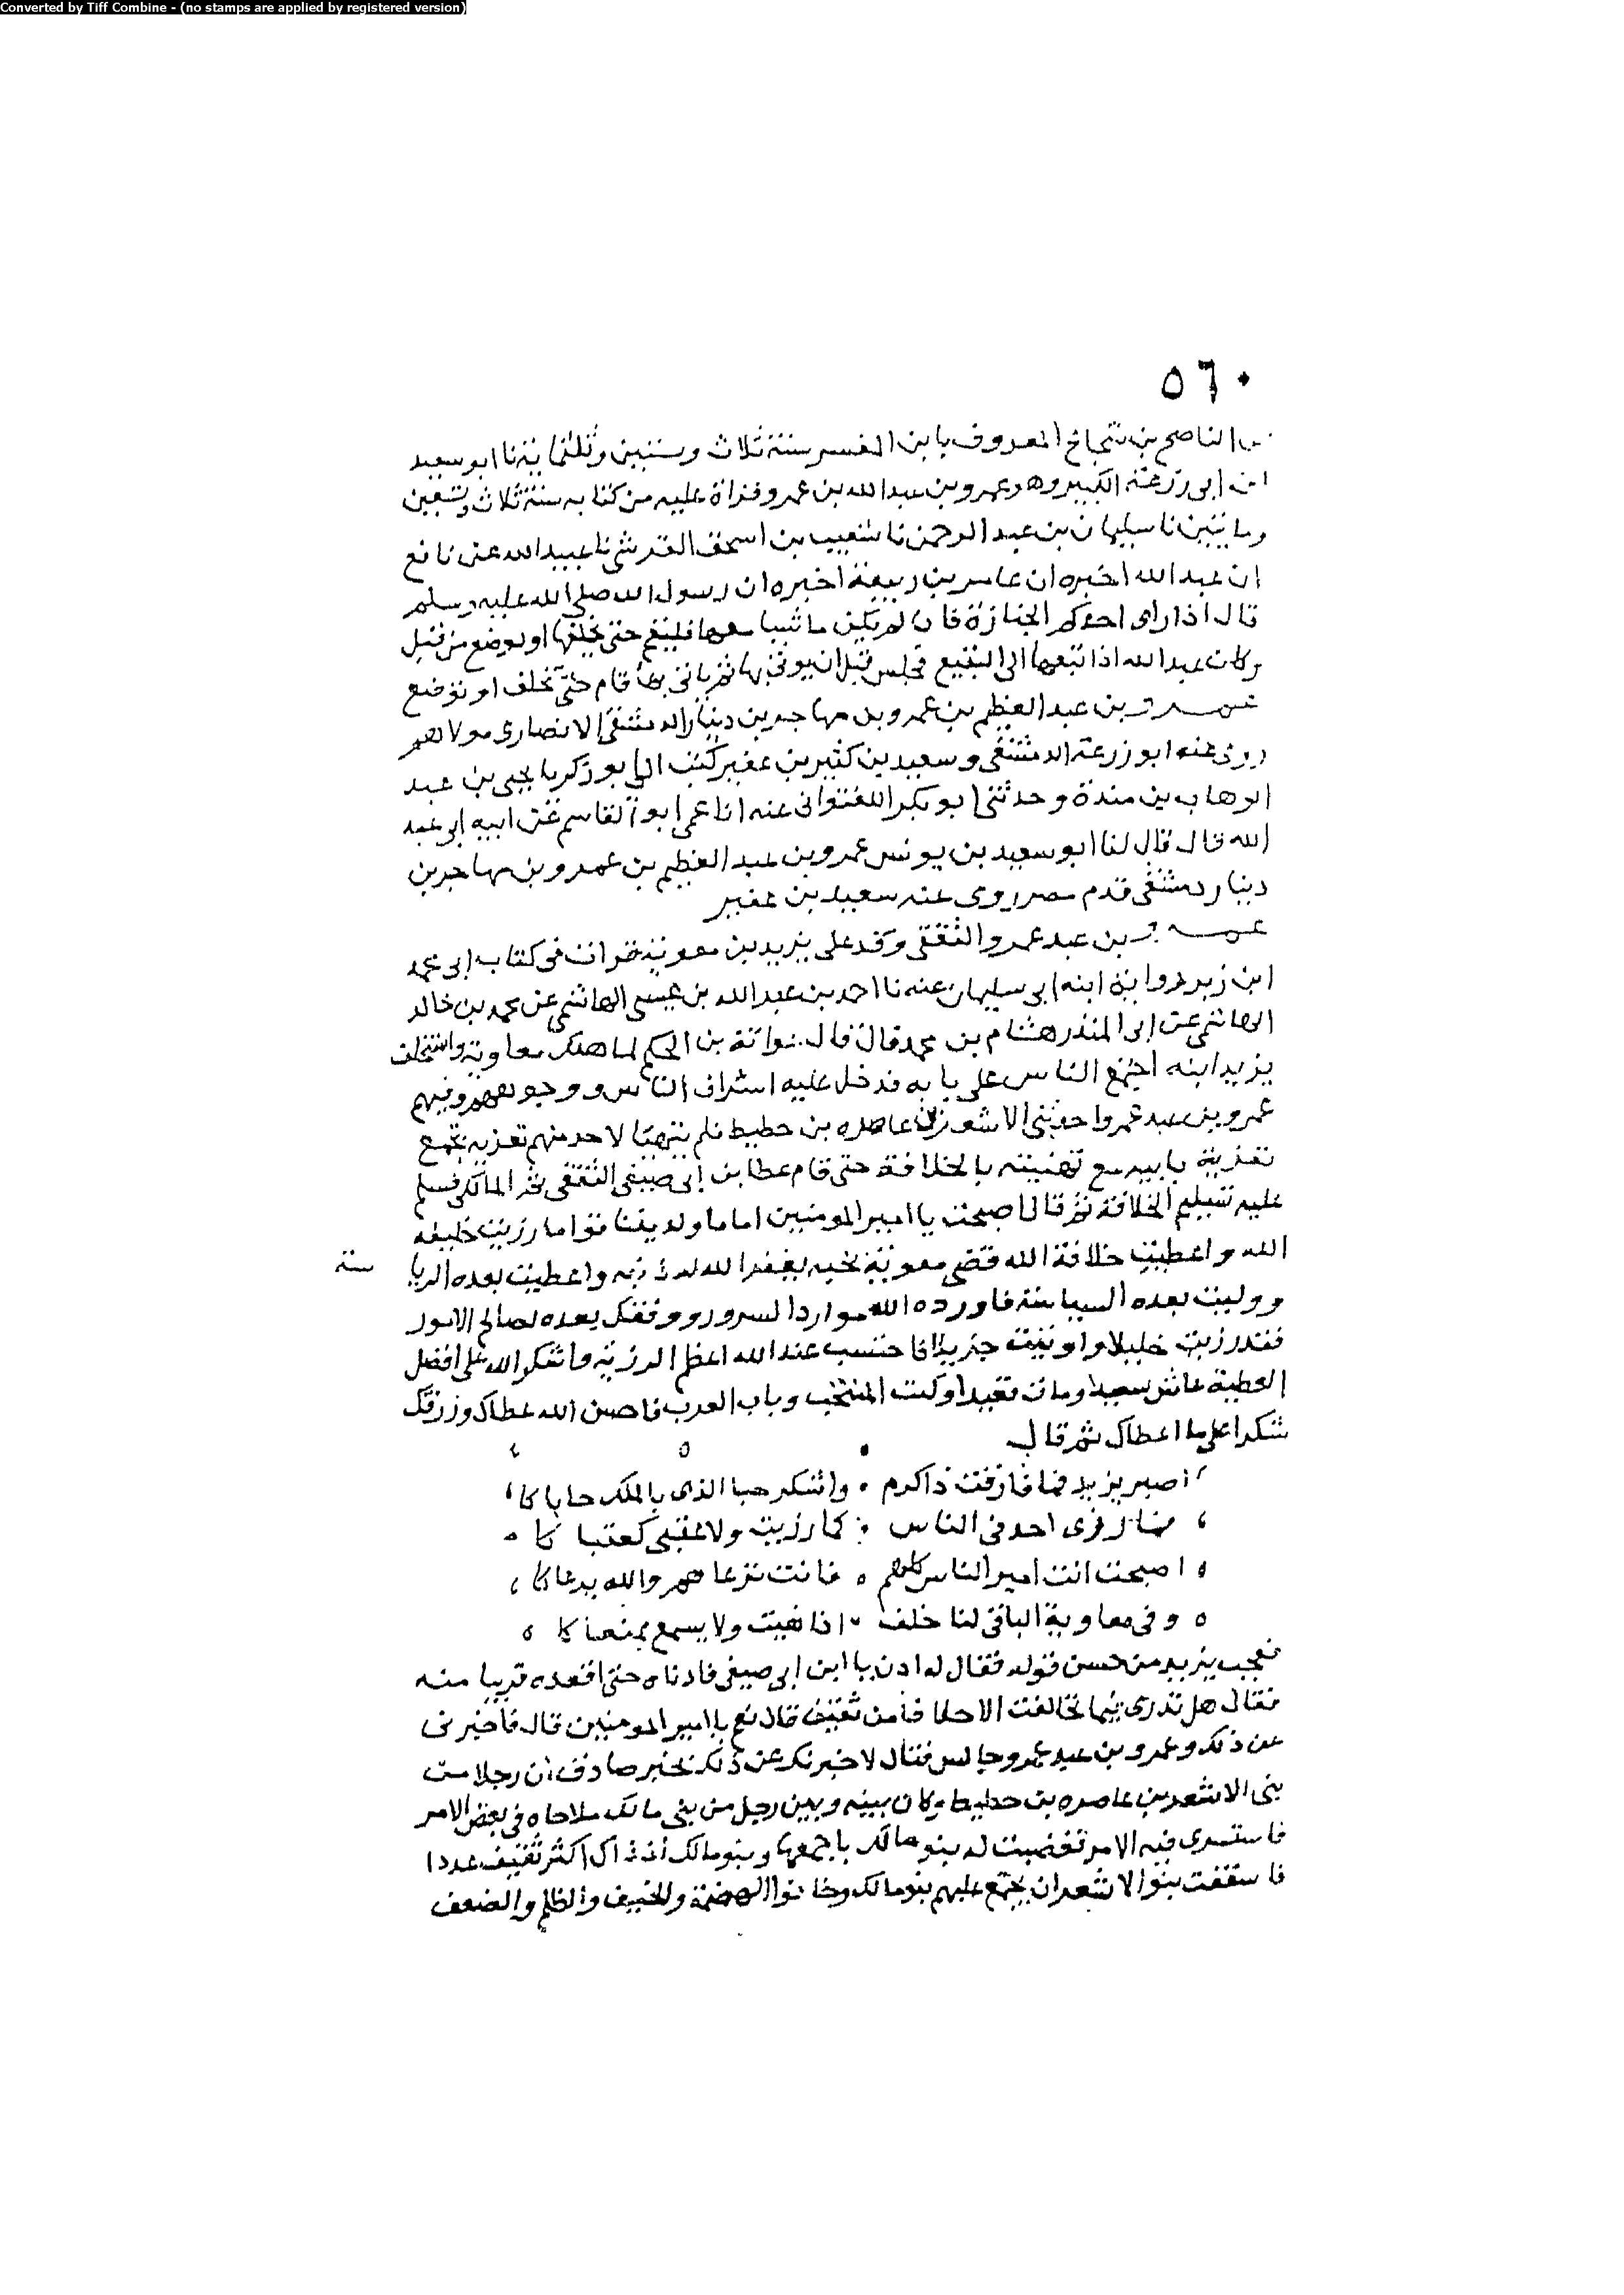 Converted by Tiff Combine - (no stamps are applied by registered version)
٥٦٠
الناصح بن شجاع المعروف بابن المفسر سنة ثلاث وستين وثلثماية نا ابو سعيد
ابن ابى زرعة الكبير وهو عمرو بن عبد الله بن عمرو قراة عليه من كتابه سنة ثلاث وتسعين
ومايتين نا سليمان بن عبد الرحمن نا شعيب بن اسحق القرشى نا عبيد الله عن نافع
ان عبد الله اخبره ان عامر بن ربيعة اخبره ان رسول الله صلى الله عليه وسلم
قال اذا راى احدكم الجنازة فان لم يكن ماشيا معها فليقم حتى يخلفها او توضع من قبل
وكان عبد الله اذا تبعها الى البقيع فجلس قبل ان يوتى بها ثم ياتى بها قام حتى تخلف او توضع
عمرو بن عبد العظيم بن عمرو بن مهاجر بن دينار الدمشقى الانصارى مولاهم
روى عنه ابو زرعة الدمشقى وسعيد بن كثير بن عفير كتب الى ابو زكريا يحيى بن عبد
الوهاب بن مندة وحدثنى ابو بكر اللفتوانى عنه انا عمى ابو القاسم عن ابيه ابى عبد
الله قال قال لنا ابو سعيد بن يونس عمرو بن عبد العظيم بن عمرو بن مهاجر بن
دينار دمشقى قدم مصر روى عنه سعيد بن عفير
عمرو بن عبد عمرو الثقفى وفد على يزيد بن معوية قرات فى كتاب ابى محمد
ابن زبر رواية ابنه ابى سليمان عنه نا احمد بن عبد الله بن عيسى الهاشمى عن محمد بن خالد
الهاشمى عن ابى المنذر هشام بن محمد قال قال عوانة بن الحكم لما هلك معاوية واستخلف
يزيد ابنه اجتمع الناس على بابه فدخل عليه اشراف الناس ووجوههم وفيهم
عمرو بن عبد عمرو احد بنى الاشعر بن عاضره بن حطيط فلم يتهيا لاحد منهم تعزيه بجمع
تعزية بابيه مع تهنيته بالخلافة حتى قام عطا بن ابى صيفى الثقفى ثم المالكى فسلم
عليه تسليم الخلافة ثم قال اصبحت يا امير المومنين اماما ولديننا قواما رزيت خليفه
الله واعطيت خلافة الله قضى معوية نحبه يغفر الله له ذنبه واعطيت بعده الرياسة
ووليت بعده السياسة فاورده الله موارد السرور ووفقك بعده لصالح الامور
فقد رزيت خليلا واوتيت جزيلا فاحتسب عند الله اعظم الرزيه واشكر الله على افضل
العطية عاش سعيدا ومات فقيدا وكنت المنتخب وباب العرب فاحسن الله عطاك ورزقك
شكرا على ما اعطاك ثم قال
اصبر يزيد فما فارقت ذا كرم واشكر حبا الذى بالملك حاباكا
احد فى الناس كما رزيت ولا عقبى كعقباكا
اصبحت انت امير الناس كلهم فانت ترعاهم والله يرعاكا
وفى معاوية الباقى لنا خلف اذا نعيت ولا يسمع بمنعاكا
فعجب يزيد من حسن قوله فقال له ادن يا ابن ابى صيفى فادناه حتى اقعده قريبا منه
فقال هل تدرى فيما تحالفت الاحلاف من ثقيف قال نعم يا امير المومنين قال فاخبرنى
عن ذلك وعمرو بن عبد عمرو جالس فقال لاخبرنك عن ذلك بخبر صادق ان رجلا من
بنى الاشعر بن عاضره بن حطيط كان بينه وبين رجل من بنى مالك ملاحاه فى بعض الامر
فاستشرى فيه الامر فغضبت له بنو مالك باجمعها وبنو مالك اذ ذاك اكثر ثقيف عددا
فاشفقت بنو الاشعر ان يجتمع عليهم بنو مالك وخافوا الهضيمة والحيف والظلم والضعف